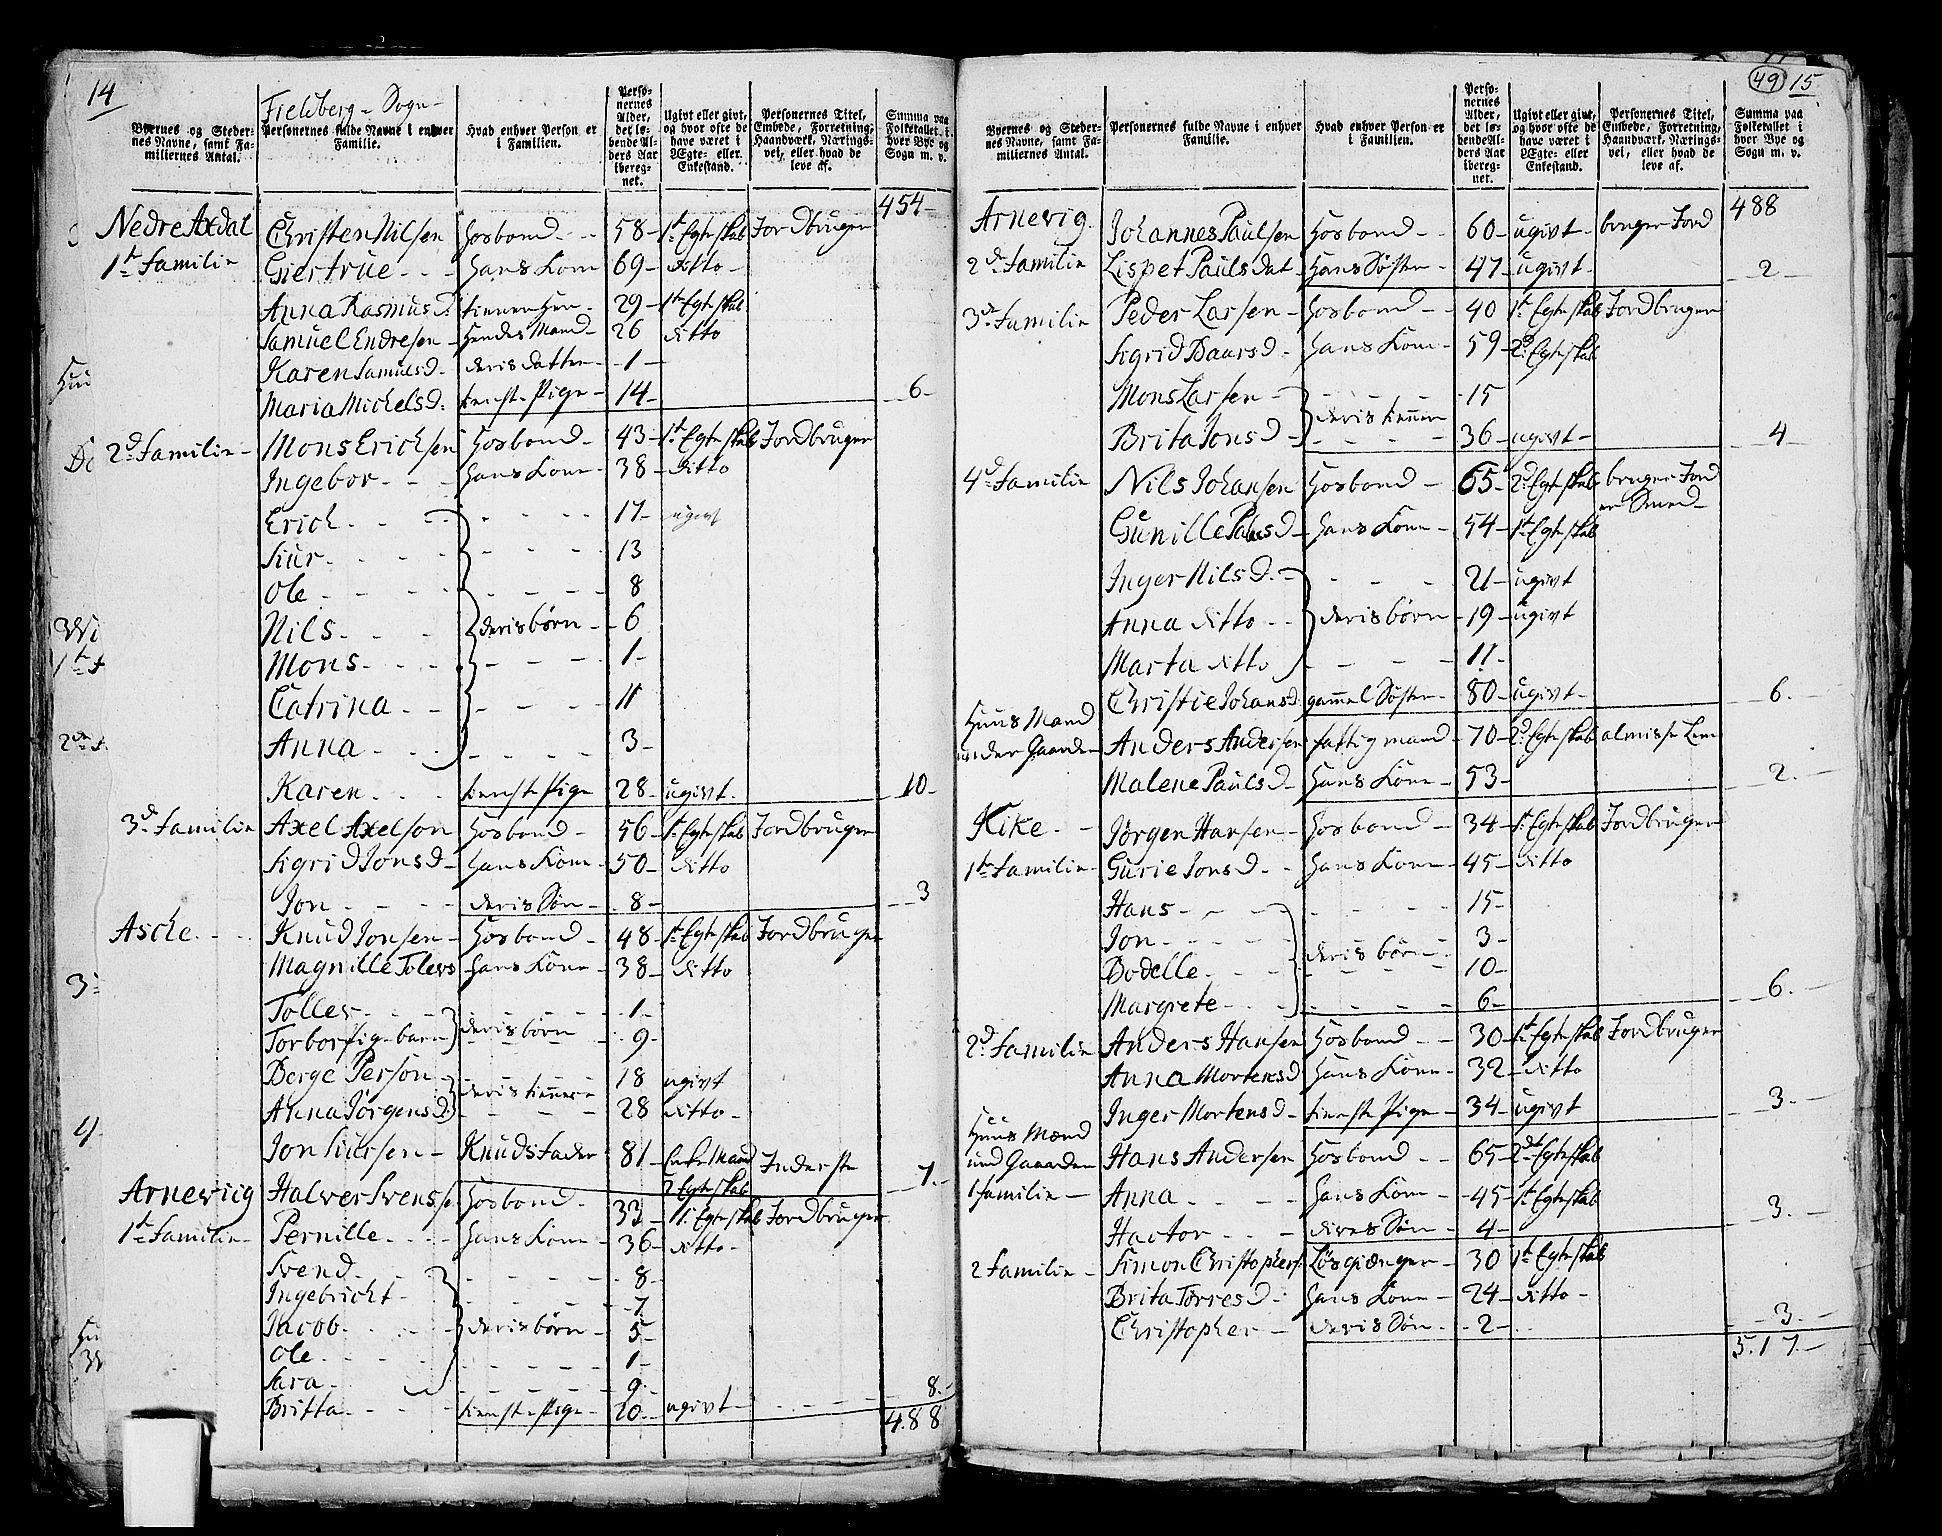 14
Fieldberg - Sogn -
Byernes og Steder-
nes Navne, samt Fa-
miliernes Antal.
Personernes fulde Navne i enhver
Familie.
Hvad enhver Person er
i Familien.
Perso-
nernes
Alder,
det lø-
bende Al-
ders Aar
iberegnet.
Ugivt eller givt,
og hvor ofte de
have været i
Ægte- eller
Enkestand.
Personernes Titel,
Embede, Forretning,
Haandværk, Nærings-
vei, eller hvad de
leve af.
Summa paa
Folketallet i
hver Bye og
Sogn m. v.
454-
Nedre Axdal Christen Nilsen Hosbond - - 58- 1t Egteskab Jordbruger
1t Familie Giertrue - - - Hans Kone 69- ditto-
Anna Rasmusd. 29- 1t Egteskab
Samuel Endresen - Hendes Mand- 26 ditto
Karen Samuelsd- deris datter - 1 -
Maria Michelsd. tieneste Pige - 14- 6-
2d Familie- Mons Erichsen Hosbond - 43- 1t Egteskab Jordbruger
Ingebor - - - Hans Kone - 38 - ditto
Erich - - 17- ugivt
Siur - - - 13
Ole - - - 8
Nils - - - deris børn - 6
Mons - - - 1-
Catrina - - 11
Anna - - - 3-
Karen - - - tieneste Pige - 28- ugivt - 10-
3d Familie Axel Axelson Hosbond - 56- 1t Egteskab Jordbruger
Sigrid Jonsd- Hans Kone- 50- ditto
Jon - - - deris Søn - 8- 3
Asche - - Knud Jonsen- Hosbond - 48- 1t Egteskab Jordbruger
Magnille Tolevs Hans Kone - 38 - ditto
Tolles - - - 1-
Torbor Pig-barn deris børn 9-
Berge Person - 18 ugivt
Anna Jørgensd. deris tienere - 28 ditto -
Jon Siursen- Knuds Fader 81- Enke Mand Inderste 7-
2 Egteskab
Arnewiig Halver Svens Hosbond - 33- 1t Egteskab Jordbruger
1t Familie- Pernille - - - Hans Kone - 36- ditto -
Svend - - - 8-
Ingebricht - 7-
Jacob - - - deris børn - 5-
Ole - - - 1-
Sara - 9-
Britta - - - tieneste Pige - 20- ugivt - 8-
488
49 15
Byernes og Steder-
nes Navne, samt Fa-
miliernes Antal.
Personernes fulde Navne i enhver
Familie.
Hvad enhver Person er
i Familien.
Perso-
nernes
Alder,
det lø-
bende Al-
ders Aar
iberegnet.
Ugivt eller givt,
og hvor ofte de
have været i
Ægte- eller
Enkestand.
Personernes Titel,
Embede, Forretning,
Haandværk, Nærings-
vei, eller hvad de
leve af.
Summa paa
Folketallet i
hver Bye og
Sogn m. v.
488
Arnevig. Johannes Paulsen Hosbond - - 60- ugivt - bruger Jord
2d Familie Lispet Paulsdat Hans Søster - 47- ugivt - 2 -
3d Familie Peder Larsen - Hosbond - - 40 1t Egteskab Jordbruger
Sigrid Baarsd. Hans Kone - 59- 2d Egteskab
Mons Larsen - 15
Brita Jonsd - deris tienere 36- ugivt - 4-
4d Familie Nils Johansen Hosbond - 65- 2d Egteskab bruger Jord
er Smed-
Gunille Paulsd- Hans Kone - 54- 1t Egteskab
Inger Nilsd. - 21- ugivt
Anna ditto - - deris børn - 19- ugivt
Marta ditto 11-
Christie Johansd gammel Søster - 80- ugivt - 6.-
Huus Mand
under Gaarden Anders Andersen fattig mand - 70- 2d Egteskab almisse Lem
Malene Paulsd- Hans Kone - 53- 2.-
Kike. - Jørgen Hansen- Hosbond - 34- 1t Egteskab Jordbruger
1t Familie - Gurie Jonsd - - Hans Kone - 45- ditto
Hans - - - 15-
Jon - - - 3-
Bodelle - - deris børn - 10-
Margrete - - 6- 6.-
2d Familie Anders Hansen Hosbond - - 30- 1t Egteskab Jordbruger
Anna Mortensd Hans Kone - 32- ditto
Inger Mortensd - tieneste Pige - 34- ugivt 3.-
Huus Mænd
und Gaarden Hans Andersen Hosbond - - 65- 2d Egteskab
1 familie - Anna - - - Hans Kone - 45- 1t Egteskab
Hactor - - - deres Søn - 4- 3.-
2 Familie - Simon Christophers. Løsgiænger - 30 1t Egteskab
Brita Torresd - Hans Kone - 24- ditto -
Christopher - deris Søn - - 2 - 3.-
517.-